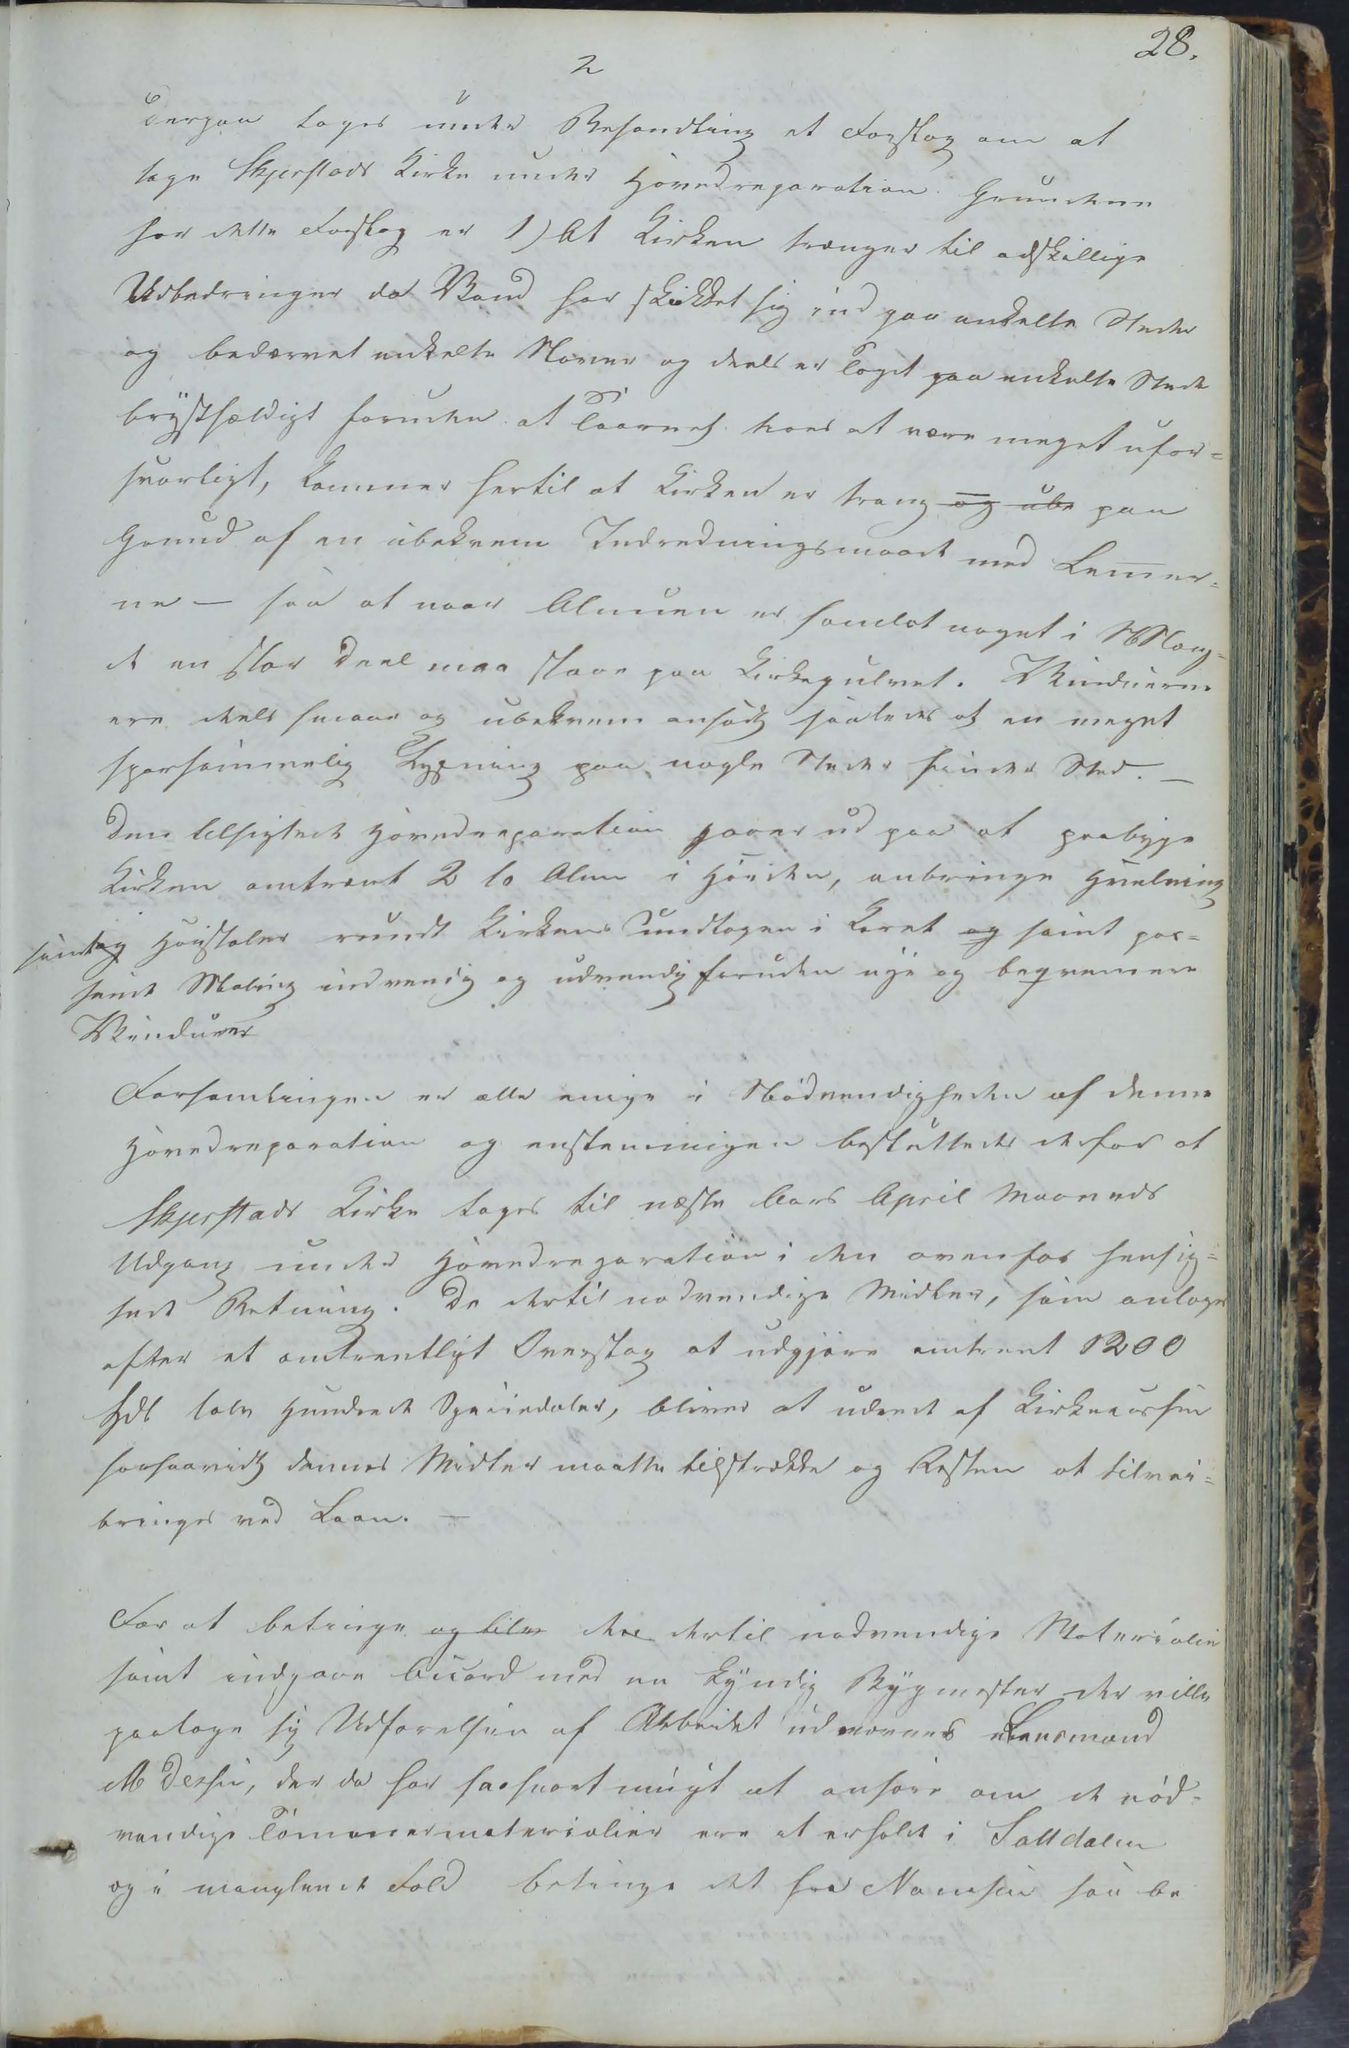 28.
2
Derpaa toges under Behandling et Forslag om at
tage Skjerstads Kirke under Hovedreparation. Grundene
for dette Forslag er 1) At Kirken trænger til adskillige
Udbedringer da Vand har skikket sig ind paa enkelte Steder
og bedærvet enkelte Stover og deels er Taget paa enkelte Steder
brystfældigt foruden at Taarnet troes at være meget ufor=
svarligt, kommer hertil at Kirken er trang og ube paa
Grund af en ubekvem Indredningsmaade med Lemer=
ne — saa at naar Almuen er samlet noget i Mæng-
de en stor Deel maa staae paa Kirkegulvet. Vinduerne
ere deels smaae og ubekvem ansadt saaledes at en meget
sparsommelig Lysning paa nogle Steder finder Sted. —
Den tilsigtede Hovedreparation gaaer ud paa at paabyge
Kirken omtrent 2 to Alen i Høiden, anbringe Hvelving
samt og Høistoler rundt Kirken undtagen i Koret og samt pas=
sende Maling indvendig og udvendig foruden nye og beqvemere
Vinduer
Forsamlingen er alle enige i Nødvendigheden af denne
Hovedreparation og enstemmigen besluttede derfor at
Skjerstads Kirke tages til næste Aars April Maaneds
Udgang under Hovedreparation i den ovenfor hensig=
tede Retning. De dertil nødvendige Midler, som antages
efter et omtrentligt Overslag at udgjøre omtrent 1200
Spdl tolv Hundrede Speciedaler, bliver at udrede af Kirkecassen
forsaavidt dennes Midler maatte tilstrække og Resten at tilvei=
bringes ved Laan. —
For at betinge og tilve de dertil nødvendige Materialier
samt indgaae Accord med en kyndig Bygmester der ville
paatage sig Udførelsen af Arbeidet udnævnes Lensmand
der da har saasnart muligt at anføre om de nød=
vendige Tømmermaterialier ere at erholde i Saltdalen
og i manglende Fald betinge det fra Namsen saa be